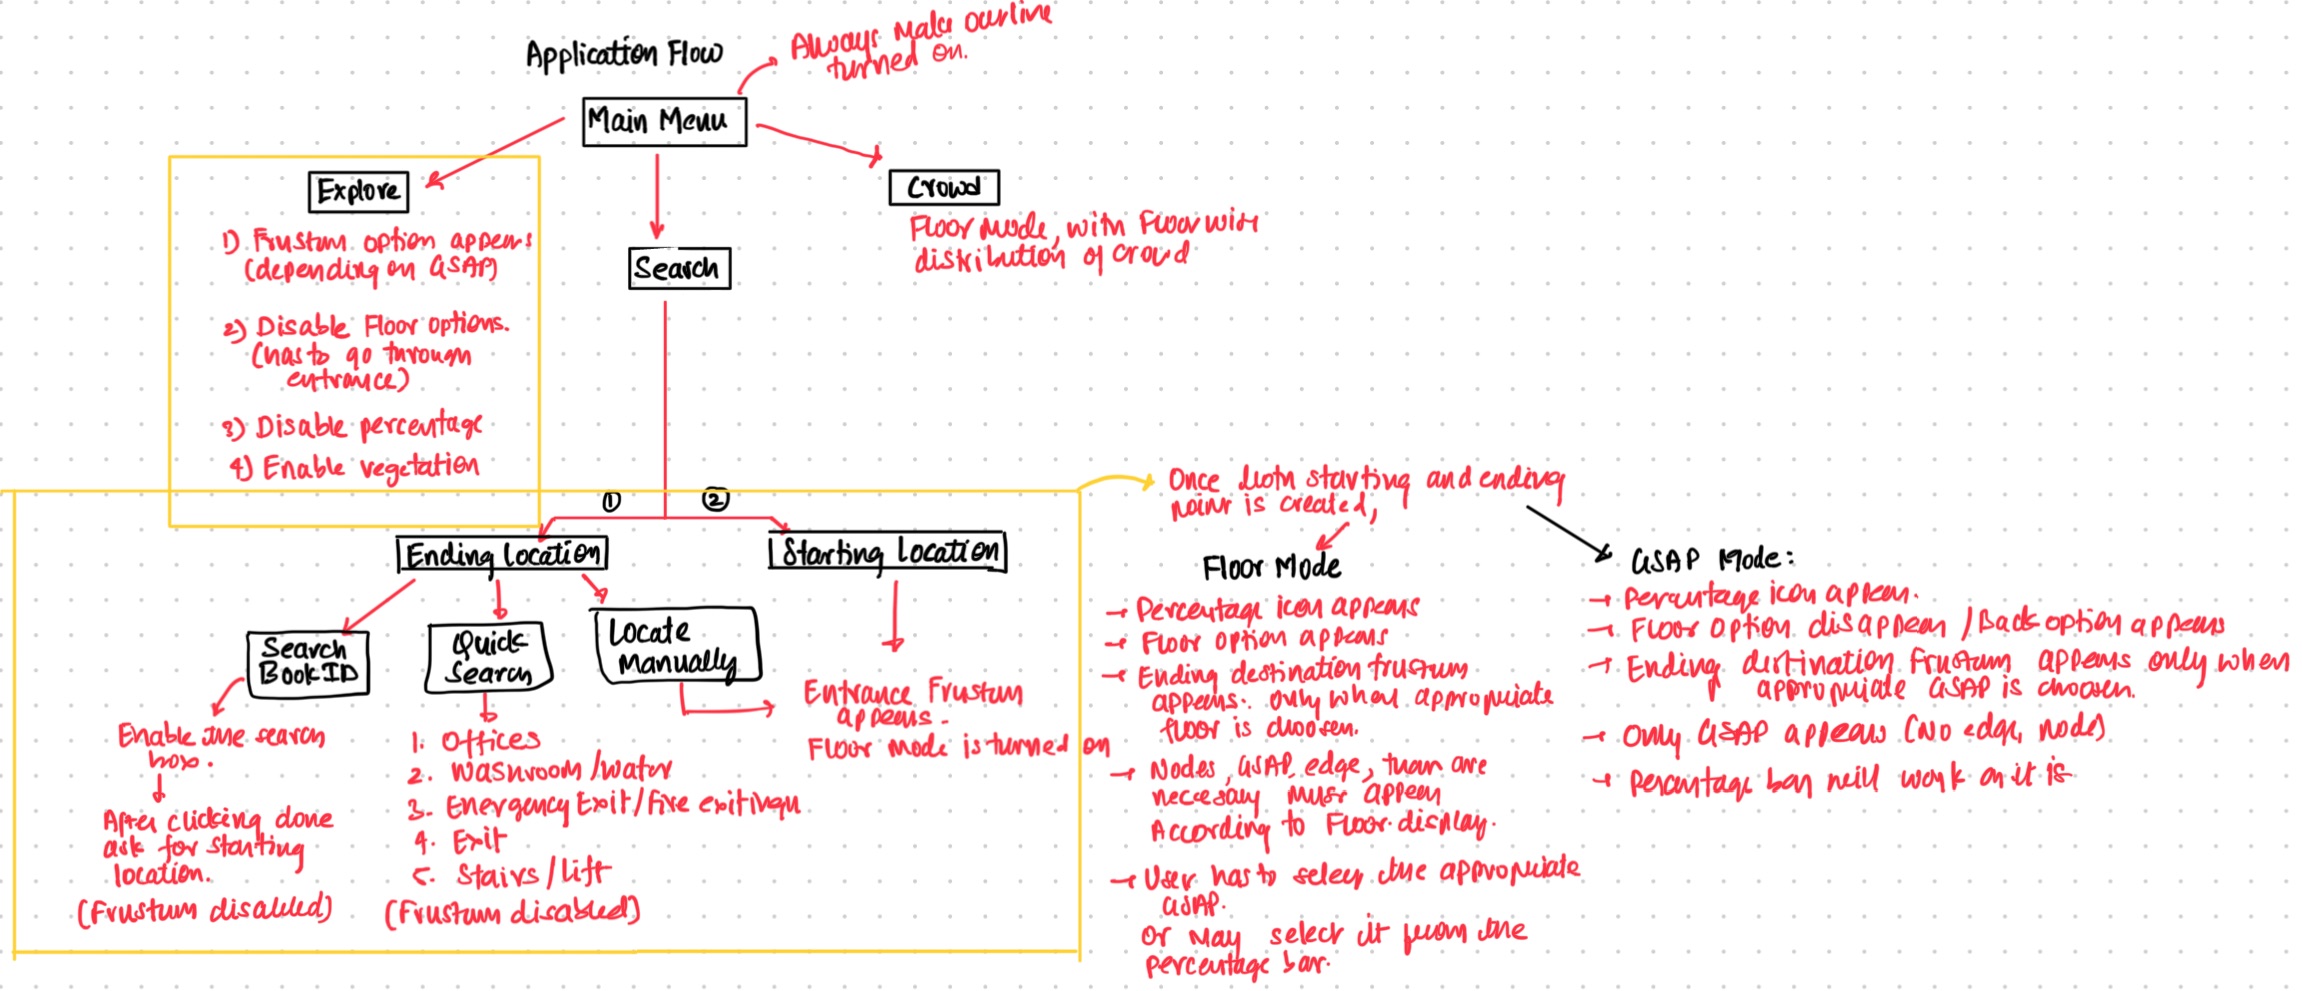 Application Flow
Always make outline
turned on.
Main Menu
Explore
1) Frustum option appears
(depending on GSAP)
2) Disable Floor options.
(has to go through
entrance)
3) Disable percentage
4) Enable vegetation
Search
Crowd
Floor Mode, with Floor wise
distribution of crowd
① ②
Ending Location
Starting Location
Search
Book ID
Quick
Search
Locate
Manually
Enable the search
box.
After clicking done
ask for starting
location.
(Frustum disabled)
1. Offices
2. Washroom/water
3. Energency Exit/Fire
4. Exit
5. Stairs/Lift
(Frustum disabled)
Entrance Frustum
appears.
Floor Mode is turned on
Once both starting and ending
point is created,
Floor Mode
→ Percentage icon appears
→ Floor option appears
→ Ending destination frustum
appears. only when appropriate
floor is choosen.
→ Nodes, GSAP, edge, that are
necessary must appear
According to Floor display.
→ User has to select the appropriate
GSAP.
Or May select it from the
percentage bar.
GSAP Mode:
→ Percentage icon appear.
→ Floor option disappear / Back option appears
→ Ending destination Frustum appears only when
appropriate GSAP is choosen.
→ Only GSAP appears (No edge, node)
→ Percentage bar will work as it is